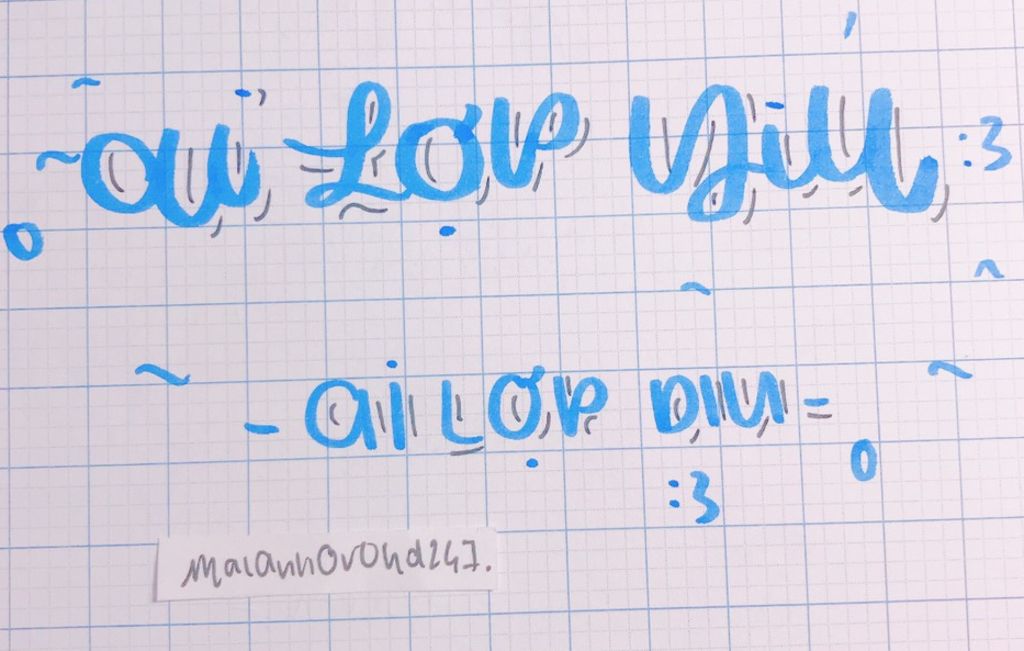 ~ai Lợp yiu :3
- ai Lợp Diu -
:3
MaiAnhOvOHd247.